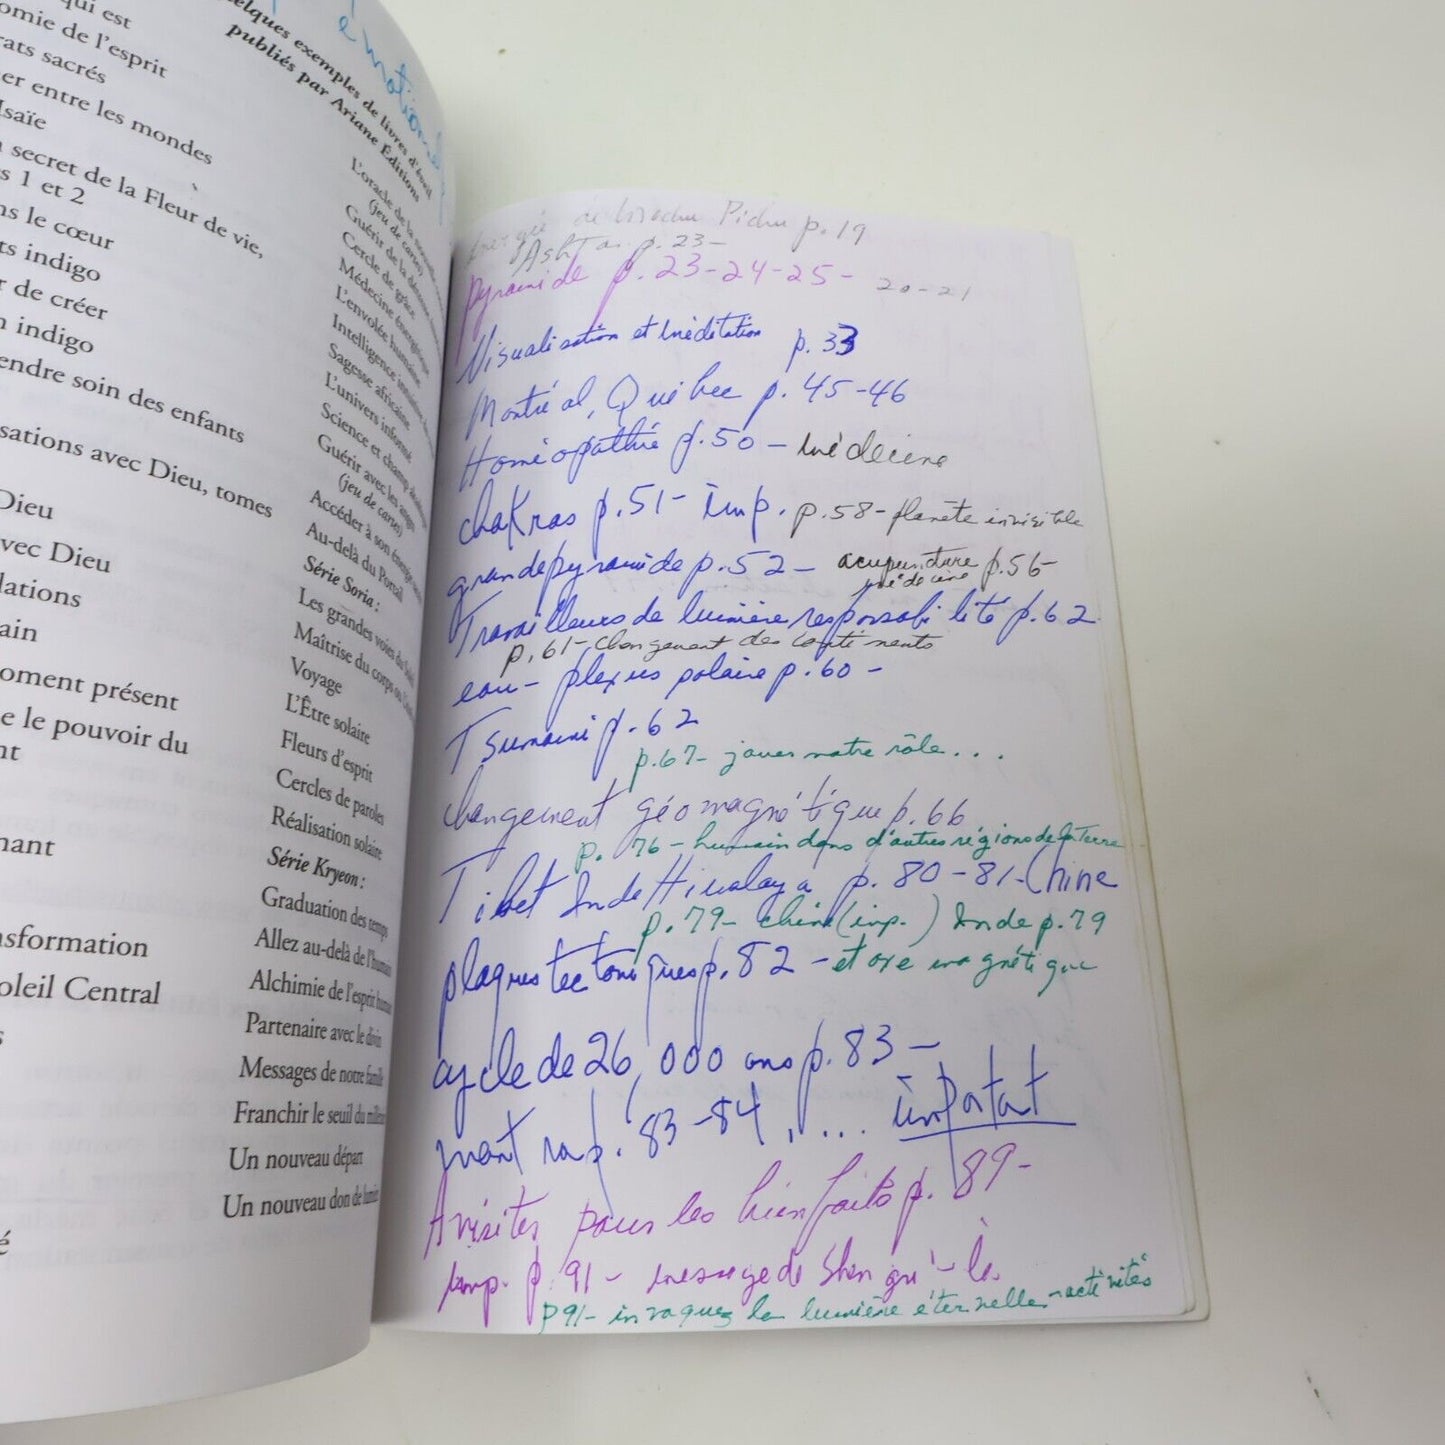 qui est
omie de l'esprit
rats sacrés
er entre les mondes
Isaïe
secret de la Fleur de vie,
s 1 et 2
ns le cœur
ts indigo
r de créer
n indigo
endre soin des enfants
sations avec Dieu, tomes
Dieu
vec Dieu
lations
ain
oment présent
e le pouvoir du
nt
nant
nsformation
oleil Central
s
é
émotionel
elques exemples de livres d'éveil
publiés par Ariane Éditions
L'oracle de la nouvelle
(jeu de cartes)
Guérir de la
Cercle de grâce
Médecine énergétique
L'envolée humaine
Intelligence intuitive
Sagesse africaine
L'univers informé
Science et champ
Guérir avec les anges
(jeu de cartes)
Accéder à son énergie
Au-delà du Portail
Série Soria :
Les grandes voies du
Maîtrise du corps ou
Voyage
L'Être solaire
Fleurs d'esprit
Cercles de paroles
Réalisation solaire
Série Kryeon :
Graduation des temps
Allez au-delà de l'humain
Alchimie de l'esprit humain
Partenaire avec le divin
Messages de notre famille
Franchir le seuil du millén
Un nouveau départ
Un nouveau don de lumière
énergie de Machu Pichu p. 19
Ashtar p. 23-
pyramide p. 23-24-25- 20-21
Visualisation et méditation p. 33
Montréal, Québec p. 45-46
Homéopathie p. 50 - médecine
chakras p. 51- imp. p. 58- planète invisible
grande pyramide p. 52 - acupuncture p. 56-
médecine
Travailleurs de lumière responsabilité p. 62
p. 61- changement des continents
eau - plexus solaire p. 60 -
Tsunami p. 62
p. 67- jouer notre rôle...
changement géomagnétique p. 66
p. 76 - humain dans d'autres régions de la Terre
Tibet Inde Himalaya p. 80-81-Chine
p. 79- chine (imp.) Inde p. 79
plaques tectoniques p. 82 - et axe magnétique
cycle de 26,000 ans p. 83 -
p. 83-84, ... important
A visiter pour les bienfaits p. 89-
imp. p. 91- message de
p 91- invoquez la lumière éternelle - activités